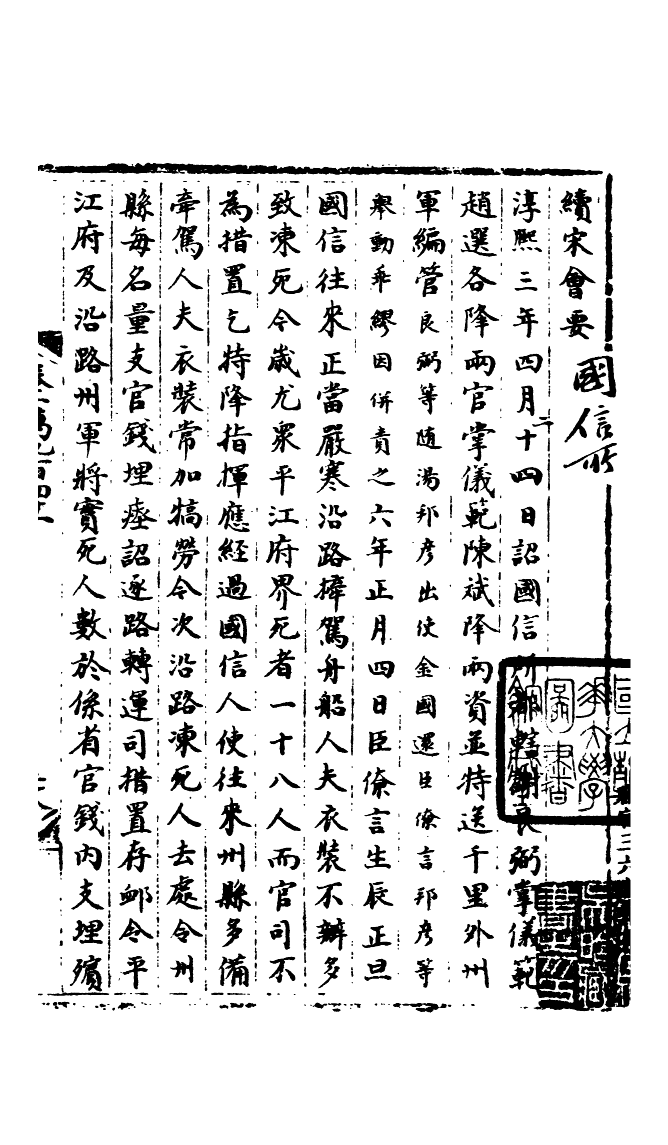 續宋會要 國信所
淳熙三年四月十四日詔國信所都轄謝良弼掌儀範
趙選各降兩官掌儀範陳斌降兩資並特送千里外州
軍編管良弼等随湯邦彦出使金國還臣僚言邦彦等
舉動乖繆因併責之六年正月四日臣僚言生辰正旦
國信往來正當嚴寒沿路捧駕舟船人夫衣裝不辦多
致凍死今歲尤衆平江府界死者一十八人而官司不
為措置乞特降指揮應經過國信人使往來州縣多備
牽駕人夫衣裝常加犒勞令次沿路凍死人去處令州
縣每名量支官錢埋瘞詔逐路轉運司措置存䘏令平
江府及沿路州軍將實死人數於係省官錢内支埋殯